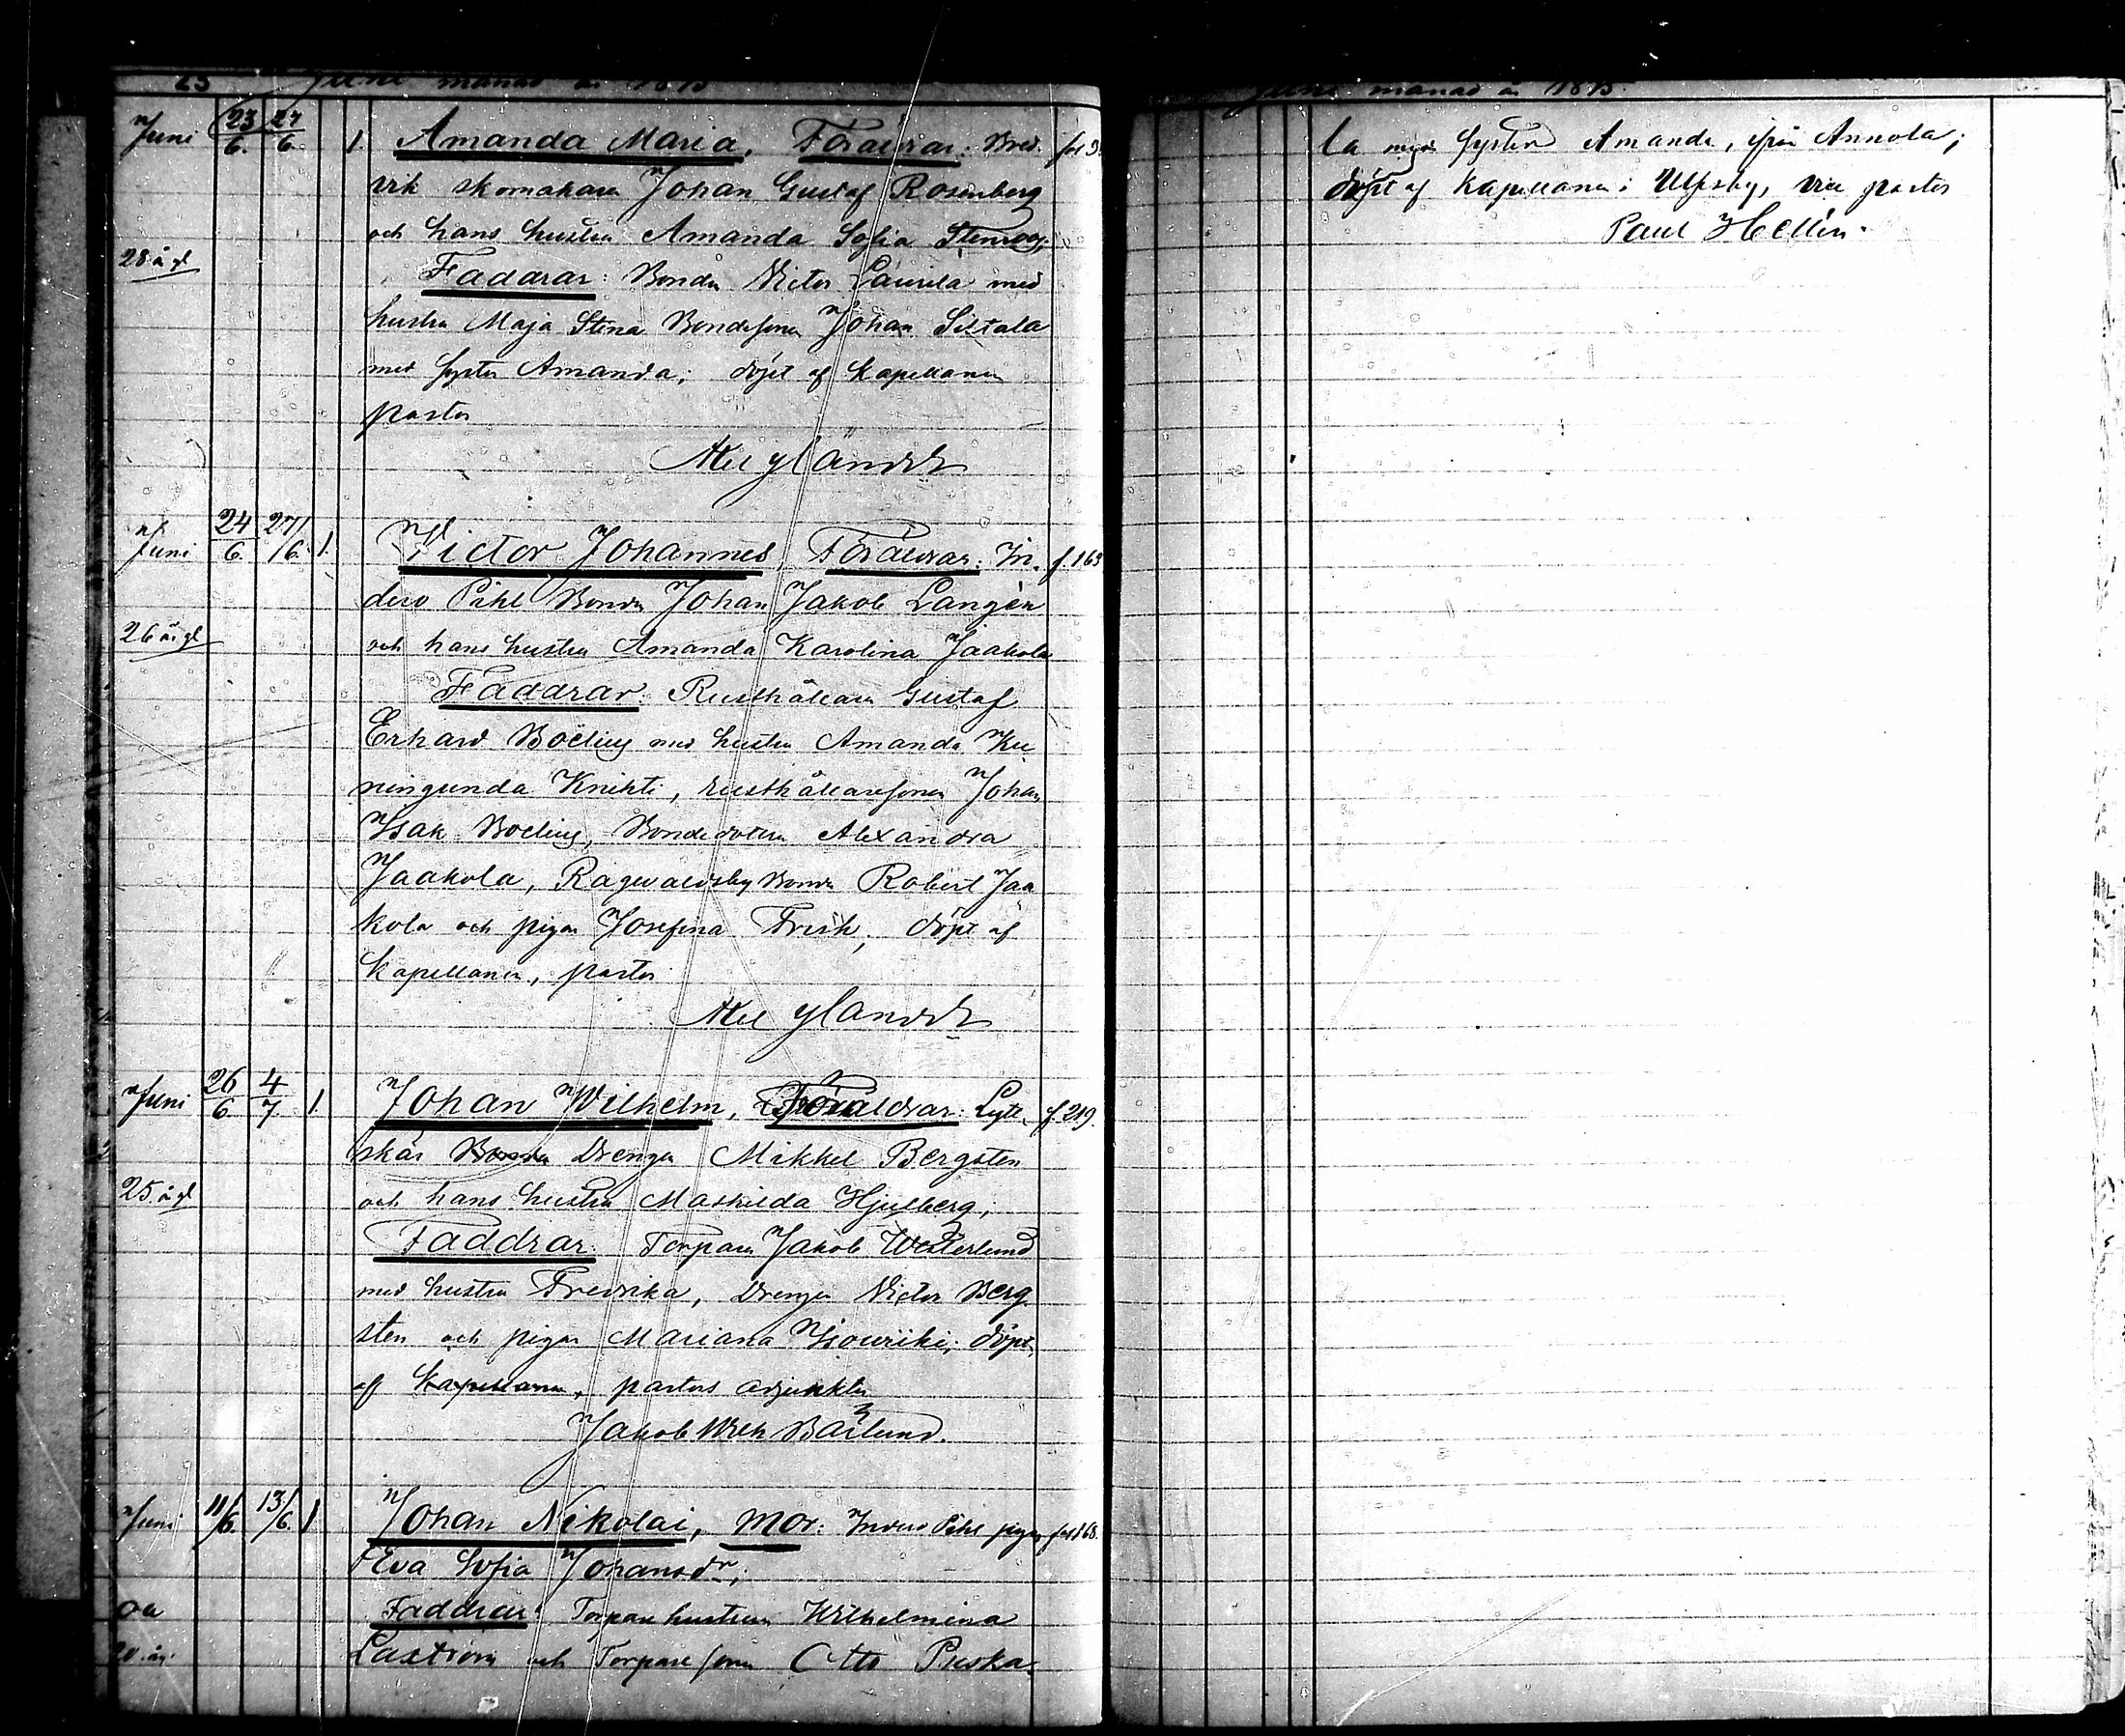 23 Juni månad år 1875
Juni 23/6. 27/6. 1. Amanda Maria, Föräldrar: Bred-
vik skomakaren Johan Gustaf Rosenberg
och hans hustru Amanda Sofia
28 å gl Faddrar: Bonden Victor Laurila med
hustru Maja Stina Bondesonen Johan Siltala
med syster Amanda; döpt af Kapellanen
pastor

Juni 24/6. 27/6. 1. Victor Johannes, Föräldrar: In- f. 163
derö Pihl Bonden Johan Jakob Langén
26 år gl och hans hustru Amanda Karolina Jaakola
Faddrar: Rusthållaren Gustaf
Erhard Boëlius med hustru Amanda Ku-
ningunda Knihti, rusthållaresonen Johan
Isak Boelius, Bondedottren Alexandra
Jaakola, Ragvaldsby Bonden Robert Jaa
kola och pigan Josefina Frisk; döpt af
Kapellanen, pastor

Juni 26/6. 4/7. 1. Johan Wilhelm, Föräldrar: Lytt- f. 219.
skär Bonden Drengen Mikkel Bergsten
25. å gl och hans hustru Mathilda Hjulberg;
Faddrar: Torparen Jakob Westerlund
med hustru Fredrika, Drengen Victor Berg
sten och pigan Mariana döpt
af Kapellanen, pastors adjunkten
Jakob Wilh Bärlund.
Juni 11/6. 13/6. 1 Johan Nikolai, Mor: Inderö Pihl pigan fol 168.
Eva Sofia Johansdr;
oä Faddrar: Torpare hustrun Wilhelmina
20 år. Laxström och Torparesonen Otto Puska-
Juni månad år 1875.
la med syster Amanda, från Annola;
döpt af Kapellanen i Ulfsby, vice pastor
Paul Hellén.